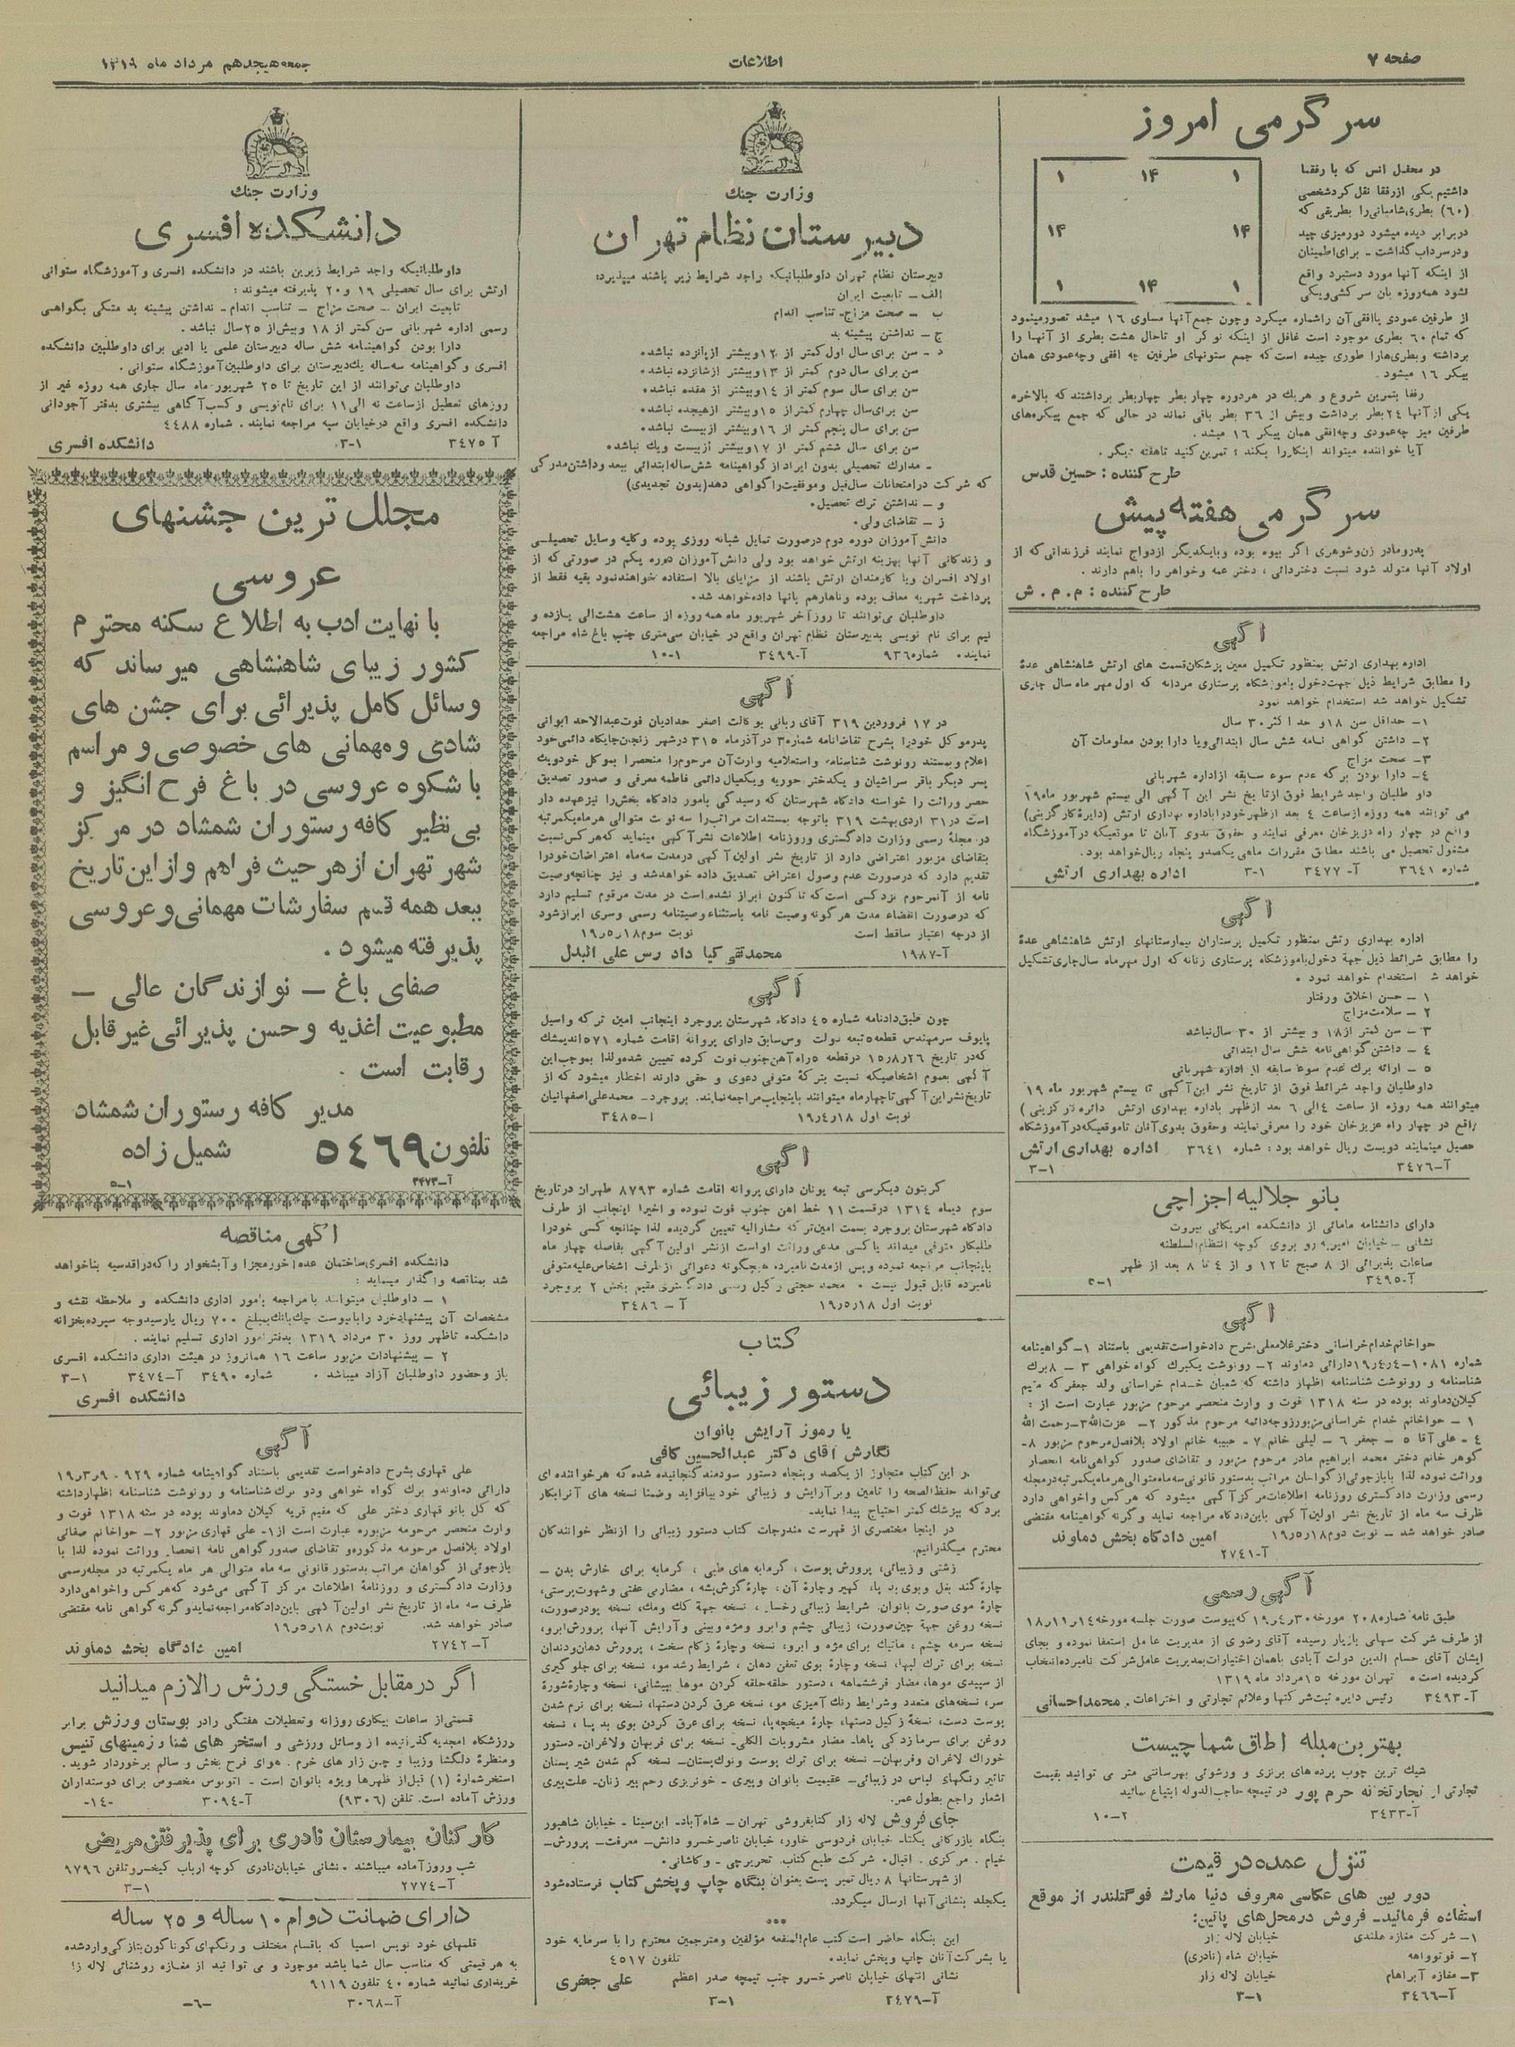 صفحه ۷
اطلاعات
جمعه هیجدهم مرداد ماه ۱۳۱۹
سرگرمی امروز
در محفل انس که با رفقا
داشتیم یکی از رفقا نقل کرد شخصی
(۶۰) بطری شامپانی را بطریقی که
در برابر دیده میشود دور میزی چید
و در سرداب گذاشت - برای اطمینان
از اینکه آنها مورد دستبرد واقع
نشود همه روزه بآن سرکشی و یکی
۱ ۱۴ ۱
۱۴ ۱۴
۱ ۱۴ ۱
از طرفین عمودی یا افقی آن را شماره میکرد و چون جمع آنها مساوی ۱۶ میشد تصور مینمود
که تمام ۶۰ بطری موجود است غافل از اینکه نوکر او تا حال هشت بطری از آنها را
برداشته و بطریها را طوری چیده است که جمع ستونهای طرفین چه افقی و چه عمودی همان
پیکر ۱۶ میشود.
رفقا بتمرین شروع و هریک در هر دوره چهار بطر چهار بطر برداشتند که بالاخره
یکی از آنها ۲۴ بطر برداشت و بیش از ۳۶ بطر باقی نماند در حالی که جمع پیکره‌های
طرفین میز چه عمودی و چه افقی همان پیکر ۱۶ میشد.
آیا خواننده میتواند اینکار را بکند؟ تمرین کنید تا هفته دیگر.
طرح کننده: حسین قدس
سرگرمی هفته پیش
پدر و مادر زن و شوهری اگر بیوه بوده و با یکدیگر ازدواج نمایند فرزندانی که از
اولاد آنها متولد شود نسبت دختر دائی، دختر عمه و خواهر را باهم دارند.
طرح کننده: م. م. ش
آگهی
اداره بهداری ارتش بمنظور تکمیل معین پزشکان قسمت های ارتش شاهنشاهی عدهٔ
را مطابق شرایط ذیل جهت دخول بآموزشگاه پرستاری مردانه که اول مهر ماه سال جاری
تشکیل خواهد شد استخدام خواهد نمود
۱- حداقل سن ۱۸ و حداکثر ۳۰ سال
۲- داشتن گواهی نامه شش سال ابتدائی و یا دارا بودن معلومات آن
۳- صحت مزاج
۴- دارا بودن برگ عدم سوء سابقه از اداره شهربانی
داوطلبان واجد شرایط فوق از تاریخ نشر این آگهی الی بیستم شهریور ماه ۱۹
می توانند همه روزه از ساعت ۴ بعد از ظهر خود را باداره بهداری ارتش (دایرهٔ کارگزینی)
واقع در چهار راه عزیزخان معرفی نمایند و حقوق بدوی آنان تا موقعیکه در آموزشگاه
مشغول تحصیل می باشند مطابق مقررات ماهی یکصد و پنجاه ریال خواهد بود.
شماره ۳۶۴۱ آ- ۳۴۷۷ ۳-۱ اداره بهداری ارتش
آگهی
اداره بهداری ارتش بمنظور تکمیل پرستاران بیمارستانهای ارتش شاهنشاهی عدهٔ
را مطابق شرائط ذیل جهة دخول بآموزشگاه پرستاری زنانه که اول مهر ماه سال جاری تشکیل
خواهد شد استخدام خواهد نمود.
۱ - حسن اخلاق و رفتار
۲ - سلامت مزاج
۳ - سن کمتر از ۱۸ و بیشتر از ۳۰ سال نباشد
۴ - داشتن گواهی نامه شش سال ابتدائی
۵ - ارائه برگ عدم سوء سابقه از اداره شهربانی
داوطلبان واجد شرائط فوق از تاریخ نشر این آگهی تا بیستم شهریور ماه ۱۹
میتوانند همه روزه از ساعت ۴ الی ۶ بعد از ظهر باداره بهداری ارتش دائره (کارگزینی)
واقع در چهار راه عزیزخان خود را معرفی نمایند و حقوق بدوی آنان تا موقعیکه در آموزشگاه
تحصیل مینمایند دویست ریال خواهد بود: شماره ۳۶۴۱ اداره بهداری ارتش
آ-۳۴۷۶ ۳-۱
بانو جلالیه اجزاچی
دارای دانشنامه مامائی از دانشکده امریکائی بیروت
نشانی - خیابان امیریه روبروی کوچه انتظام السلطنه
ساعات پذیرائی از ۸ صبح تا ۱۲ و از ۴ تا ۸ بعد از ظهر
آ-۳۴۹۵
آگهی
حواخانم خدام خراسانی دختر غلامعلی بشرح دادخواست تقدیمی باستناد ۱- گواهینامه
شماره ۱۰۸۱-۱۹/۴/۴ دارائی دماوند ۲- رونوشت یکبرگ گواه خواهی ۳ - ۸ برگ
شناسنامه و رونوشت شناسنامه اظهار داشته که شعبان خدام خراسانی ولد جعفر که مقیم
گیلان دماوند بوده در سنه ۱۳۱۸ فوت و وارث منحصر مرحوم مزبور عبارت است از:
۱ - حواخانم خدام خراسانی مزبور زوجه دائمه مرحوم مذکور ۲- عزت الله ۳- رحمت الله
۴ - علی آقا ۵ - جعفر ۶ - لیلی خانم ۷ - حبیبه خانم اولاد بلافصل مرحوم مزبور ۸-
گوهر خانم دختر محمد ابراهیم مادر مرحوم مزبور و تقاضای صدور گواهی نامه انحصار
وراثت نموده لذا با بازجوئی از گواهان مراتب بدستور قانونی سه ماه متوالی هر ماه یکمرتبه در مجله
رسمی وزارت دادگستری روزنامه اطلاعات مرکز آگهی میشود که هر کس واخواهی دارد
ظرف سه ماه از تاریخ نشر اولین آگهی باین دادگاه مراجعه نماید و گرنه گواهینامه مقتضی
صادر خواهد شد - نوبت دوم ۱۹/۵/۱۸ امین دادگاه بخش دماوند
آ-۲۷۴۱
آگهی رسمی
طبق نامه شماره ۲۰۸ مورخه ۱۹/۴/۳۰ که پیوست صورت جلسه مورخه ۱۸/۱۱/۱۴
از طرف شرکت سهامی بازیار رسیده آقای رضوی از مدیریت عامل استعفا نموده و بجای
ایشان آقای حسام الدین دولت آبادی باهمان اختیارات بمدیریت عامل شرکت نامبرده انتخاب
گردیده است. تهران مورخه ۱۵ مرداد ماه ۱۳۱۹
آ-۳۴۹۳ رئیس دایره ثبت شرکتها و علائم تجارتی و اختراعات. محمد احسانی
بهترین مبله اطاق شما چیست
شیک ترین چوب پرده های برنزی و ورشوئی بهر سانتی متر می توانید بقیمت
تجارتی از تجارتخانه حرم پور در تیمچه حاجب الدوله ابتیاع نمائید
آ-۳۴۳۳ ۱۰-۲
تنزل عمده در قیمت
دوربین های عکاسی معروف دنیا مارک فوگتلندر از موقع
استفاده فرمائید- فروش در محل های پائین:
۱- شرکت مغازه هلندی خیابان لاله زار
۲- فوتوواهه خیابان شاه (نادری)
۳- مغازه آبراهام خیابان لاله زار
آ-۳۴۶۶ ۳-۱
وزارت جنگ
دبیرستان نظام تهران
دبیرستان نظام تهران داوطلبانیکه واجد شرایط زیر باشند میپذیرد:
الف - تابعیت ایران
ب - صحت مزاج - تناسب اندام
ج - نداشتن پیشینه بد
د - سن برای سال اول کمتر از ۱۲ و بیشتر از پانزده نباشد.
سن برای سال دوم کمتر از ۱۳ و بیشتر از شانزده نباشد.
سن برای سال سوم کمتر از ۱۴ و بیشتر از هفده نباشد.
سن برای سال چهارم کمتر از ۱۵ و بیشتر از هیجده نباشد.
سن برای سال پنجم کمتر از ۱۶ و بیشتر از بیست نباشد.
سن برای سال ششم کمتر از ۱۷ و بیشتر از بیست و یک نباشد.
- مدارک تحصیلی بدون ایراد از گواهینامه شش ساله ابتدائی ببعد و داشتن مدرکی
که شرکت در امتحانات سال قبل و موفقیت را گواهی دهد (بدون تجدیدی)
و - نداشتن ترک تحصیل.
ز - تقاضای ولی.
دانش آموزان دوره دوم در صورت تمایل شبانه روزی بوده و کلیه وسایل تحصیلی
و زندگانی آنها بهزینه ارتش خواهد بود ولی دانش آموزان دوره یکم در صورتی که از
اولاد افسران و یا کارمندان ارتش باشند از مزایای بالا استفاده خواهند نمود بقیه فقط از
پرداخت شهریه معاف بوده و ناهار هم بآنها داده خواهد شد.
داوطلبان می توانند تا روز آخر شهریور ماه همه روزه از ساعت هشت الی یازده و
نیم برای نام نویسی بدبیرستان نظام تهران واقع در خیابان سی متری جنب باغ شاه مراجعه
نمایند. شماره ۹۳۶ آ-۳۴۹۹ ۱۰-۱
آگهی
در ۱۷ فروردین ۳۱۹ آقای ربانی بوکالت اصغر حدادیان فوت عبدالاحد ابوانی
پدر موکل خود را بشرح تقاضانامه شماره ۳ در آذر ماه ۳۱۵ در شهر زنجان جایگاه دائمی خود
اعلام و بمستند رونوشت شناسنامه و استعلامیه وارث آن مرحوم را منحصرا بموکل خود و یک
پسر دیگر باقر سراشیان و یکدختر حوریه و یکعیال دائمی فاطمه معرفی و صدور تصدیق
حصر وراثت را خواسته دادگاه شهرستان که رسیدگی بامور دادگاه بخش را نیز عهده دار
است در ۳۱ اردیبهشت ۳۱۹ باتوجه بمستندات مراتب را سه نوبت متوالی هر ماه یکمرتبه
در مجلهٔ رسمی وزارت دادگستری و روزنامه اطلاعات نشر آگهی مینماید که هر کس نسبت
بتقاضای مزبور اعتراضی دارد از تاریخ نشر اولین آگهی در مدت سه ماه اعتراضات خود را
تقدیم دارد که در صورت عدم وصول اعتراض تصدیق داده خواهد شد و نیز چنانچه وصیت
نامه از آنمرحوم نزد کسی است که تا کنون ابراز نشده است در مدت مرقوم تسلیم دارد
که در صورت انقضاء مدت هر گونه وصیت نامه باستثناء وصیتنامه رسمی و سری ابراز شود
از درجه اعتبار ساقط است نوبت سوم ۱۹/۵/۱۸
آ-۱۹۸۷ محمدتقی کیا دادرس علی البدل
آگهی
چون طبق دادنامه شماره ۴۵ دادگاه شهرستان بروجرد اینجانب امین ترکه واسیل
پاپوف سرمهندس قطعه ۵ تبعه دولت روس سابق دارای پروانه اقامت شماره ۵۷۱ اندیمشک
که در تاریخ ۱۵/۸/۲۶ در قطعه ۵ راه آهن جنوب فوت کرده تعیین شده ولذا بموجب این
آگهی بعموم اشخاصیکه نسبت بترکهٔ متوفی دعوی و حقی دارند اخطار میشود که از
تاریخ نشر این آگهی تا چهار ماه میتوانند باینجانب مراجعه نمایند. بروجرد- محمد علی اصفهانیان
نوبت اول ۱۹/۴/۱۸ آ-۳۴۸۵
آگهی
کریتون دیکرسی تبعه یونان دارای پروانه اقامت شماره ۸۷۹۳ طهران در تاریخ
سوم دیماه ۱۳۱۴ در قسمت ۱۱ خط آهن جنوب فوت نموده و اخیرا اینجانب از طرف
دادگاه شهرستان بروجرد بسمت امین ترکه مشارالیه تعیین گردیده لذا چنانچه کسی خود را
طلبکار متوفی میداند یا کسی مدعی وراثت او است از نشر اولین آگهی بفاصله چهار ماه
باینجانب مراجعه نموده و پس از مدت نامبرده هیچگونه دعوائی از طرف اشخاص علیه متوفی
نامبرده قابل قبول نیست. محمد حجتی وکیل رسمی دادگستری مقیم بخش ۲ بروجرد
نوبت اول ۱۹/۵/۱۸ آ - ۳۴۸۶
کتاب
دستور زیبائی
یا رموز آرایش بانوان
نگارش آقای دکتر عبدالحسین کافی
در این کتاب متجاوز از یکصد و پنجاه دستور سودمند گنجانیده شده که هر خواننده ای
می‌تواند حفظ الصحه را تامین و بر آرایش و زیبائی خود بیافزاید و ضمنا نسخه های آنرا بکار
برد که بپزشک کمتر احتیاج پیدا نماید.
در اینجا مختصری از فهرست مندرجات کتاب دستور زیبائی را از نظر خوانندگان
محترم میگذرانیم.
زشتی و زیبائی، پرورش پوست، گرمابه های طبی، گرمابه برای خارش بدن -
چارهٔ گند بغل و بوی بد پا، کهیر و چارهٔ آن، چارهٔ گزش پشه، مضار بی عفتی و شهوت پرستی،
چارهٔ موی صورت بانوان. شرایط زیبائی رخسار، نسخه جهة کک و مک، نسخه پودر صورت،
نسخه روغن جهة چین صورت، زیبائی چشم و ابرو و مژه و بینی و آرایش آنها، پرورش ابرو،
نسخه سرمه چشم، ماتیک برای مژه و ابرو، نسخه و چارهٔ زکام سخت، پرورش دهان و دندان
نسخه برای ترک لبها، نسخه و چارهٔ بوی تعفن دهان، شرایط رشد مو، نسخه برای جلوگیری
از سپیدی موها، مضار فرششماهه، دستور حلقه حلقه کردن موها به پیشانی، نسخه و چارهٔ شورهٔ
سر، نسخه‌های متعدد و شرایط رنگ آمیزی مو، نسخه عرق کردن دستها، نسخه برای نرم شدن
پوست دست، نسخهٔ زگیل دستها، چارهٔ میخچه پا، نسخه برای عرق کردن بوی بد پا، نسخه
روغن برای سرمازدگی پاها- مضار مشروبات الکلی- نسخه برای فربهان و لاغران- دستور
خوراک لاغران و فربهان- نسخه برای ترک پوست و نوک پستان- نسخه کم شدن شیر پستان
تاثیر رنگهای لباس در زیبائی- عقیمیت بانوان و پیری - خونریزی رحم پیر زنان- علت پیری
اشعار راجع بطول عمر.
جای فروش لاله زار کتابفروشی تهران - شاه آباد- ابن سینا - خیابان شاهپور
بنگاه بازرگانی یکتا- خیابان فردوسی خاور، خیابان ناصر خسرو دانش- معرفت- پرورش-
خیام. مرکزی. اقبال. شرکت طبع کتاب. تحریرچی - و کاشانی.
از شهرستانها ۸ ریال تمبر پست بعنوان بنگاه چاپ و پخش کتاب فرستاده شود
یکجلد بنشانی آنها ارسال میگردد.
این بنگاه حاضر است کتب عام المنفعه مؤلفین و مترجمین محترم را با سرمایه خود
یا بشرکت آنان چاپ و پخش نماید. تلفون ۴۵۱۷
نشانی انتهای خیابان ناصر خسرو جنب تیمچه صدر اعظم علی جعفری
آ-۳۴۷۹ ۳-۱
وزارت جنگ
دانشکده افسری
داوطلبانیکه واجد شرایط زیرین باشند در دانشکده افسری و آموزشگاه ستوانی
ارتش برای سال تحصیلی ۱۹ و ۲۰ پذیرفته میشوند:
تابعیت ایران - صحت مزاج - تناسب اندام - نداشتن پیشینه بد متکی بگواهی
رسمی اداره شهربانی سن کمتر از ۱۸ و بیش از ۲۵ سال نباشد.
دارا بودن گواهینامه شش ساله دبیرستان علمی یا ادبی برای داوطلبین دانشکده
افسری و گواهینامه سه ساله یک دبیرستان برای داوطلبین آموزشگاه ستوانی.
داوطلبان می‌توانند از این تاریخ تا ۲۵ شهریور ماه سال جاری همه روزه غیر از
روزهای تعطیل از ساعت نه الی ۱۱ برای نام نویسی و کسب آگاهی بیشتری بدفتر آجودانی
دانشکده افسری واقع در خیابان سپه مراجعه نمایند. شماره ۴۴۸۸
آ ۳۴۷۵ ۳-۱ دانشکده افسری
مجلل ترین جشنهای
عروسی
با نهایت ادب به اطلاع سکنه محترم
کشور زیبای شاهنشاهی میرساند که
وسائل کامل پذیرائی برای جشن های
شادی و مهمانی های خصوصی و مراسم
باشکوه عروسی در باغ فرح انگیز و
بی نظیر کافه رستوران شمشاد در مرکز
شهر تهران از هر حیث فراهم و از این تاریخ
ببعد همه قسم سفارشات مهمانی و عروسی
پذیرفته میشود.
صفای باغ - نوازندگان عالی -
مطبوعیت اغذیه و حسن پذیرائی غیر قابل
رقابت است.
مدیر کافه رستوران شمشاد
تلفون ۵۴۶۹ شمیل زاده
آ-۳۴۷۳ ۵-۱
آگهی مناقصه
دانشکده افسری ساختمان عده آخور مجزا و آبشخوار را که در اقدسیه بنا خواهد
شد بمناقصه واگذار مینماید:
۱ - داوطلبان میتوانند با مراجعه بامور اداری دانشکده و ملاحظه نقشه و
مشخصات آن پیشنهاد خود را با پیوست چک بانک بمبلغ ۷۰۰ ریال یا رسید وجه سپرده بخزانه
دانشکده تا ظهر روز ۳۰ مرداد ۱۳۱۹ بدفتر امور اداری تسلیم نمایند.
۲ - پیشنهادات مزبور ساعت ۱۶ همانروز در هیئت اداری دانشکده افسری
باز و حضور داوطلبان آزاد میباشد. شماره ۳۴۹۰ آ-۳۴۷۴ ۳-۱
دانشکده افسری
آگهی
علی قهاری بشرح دادخواست تقدیمی باستناد گواهینامه شماره ۹۲۹ - ۱۹/۳/۹
دارائی دماوند و برگ گواه خواهی و دو برگ شناسنامه و رونوشت شناسنامه اظهار داشته
که گل بانو قهاری دختر علی که مقیم قریه گیلان دماوند بوده در سنه ۱۳۱۸ فوت و
وارث منحصر مرحومه مزبوره عبارت است از ۱- علی قهاری مزبور ۲- حواخانم صفائی
اولاد بلافصل مرحومه مذکوره و تقاضای صدور گواهی نامه انحصار وراثت نموده لذا با
بازجوئی از گواهان مراتب بدستور قانونی سه ماه متوالی هر ماه یکمرتبه در مجله رسمی
وزارت دادگستری و روزنامهٔ اطلاعات مرکز آگهی می‌شود که هر کس واخواهی دارد
ظرف سه ماه از تاریخ نشر اولین آگهی باین دادگاه مراجعه نماید و گرنه گواهی نامه مقتضی
صادر خواهد شد. نوبت دوم ۱۹/۵/۱۸
آ-۲۷۴۲ امین دادگاه بخش دماوند
اگر در مقابل خستگی ورزش را لازم میدانید
قسمتی از ساعات بیکاری روزانه و تعطیلات هفتگی را در بوستان ورزش برابر
ورزشگاه امجدیه گذرانیده از وسائل ورزشی و استخرهای شنا و زمینهای تنیس
و منظرهٔ دلگشا و زیبا و چمن زار های خرم. هوای فرح بخش و سالم برخوردار شوید.
استخر شمارهٔ (۱) قبل از ظهرها ویژه بانوان است - اتوبوس مخصوص برای دوستداران
ورزش آماده است. تلفن (۹۳۰۶) آ-۳۰۹۴ -۱۴-
کارکنان بیمارستان نادری برای پذیرفتن مریض
شب و روز آماده میباشند. نشانی خیابان نادری کوچه ارباب کیخسرو تلفن ۹۷۹۶
آ-۲۷۷۴ ۳-۱
دارای ضمانت دوام ۱۰ ساله و ۲۵ ساله
قلمهای خود نویس اسمیا که باقسام مختلف و رنگهای گوناگون بتازگی وارد شده
به هر قیمتی که مناسب حال شما باشد موجود و می توانید از مغازه روشنائی لاله زار
خریداری نمائید شماره ۴۰ تلفون ۹۱۱۹
آ-۳۰۶۸ -۶-